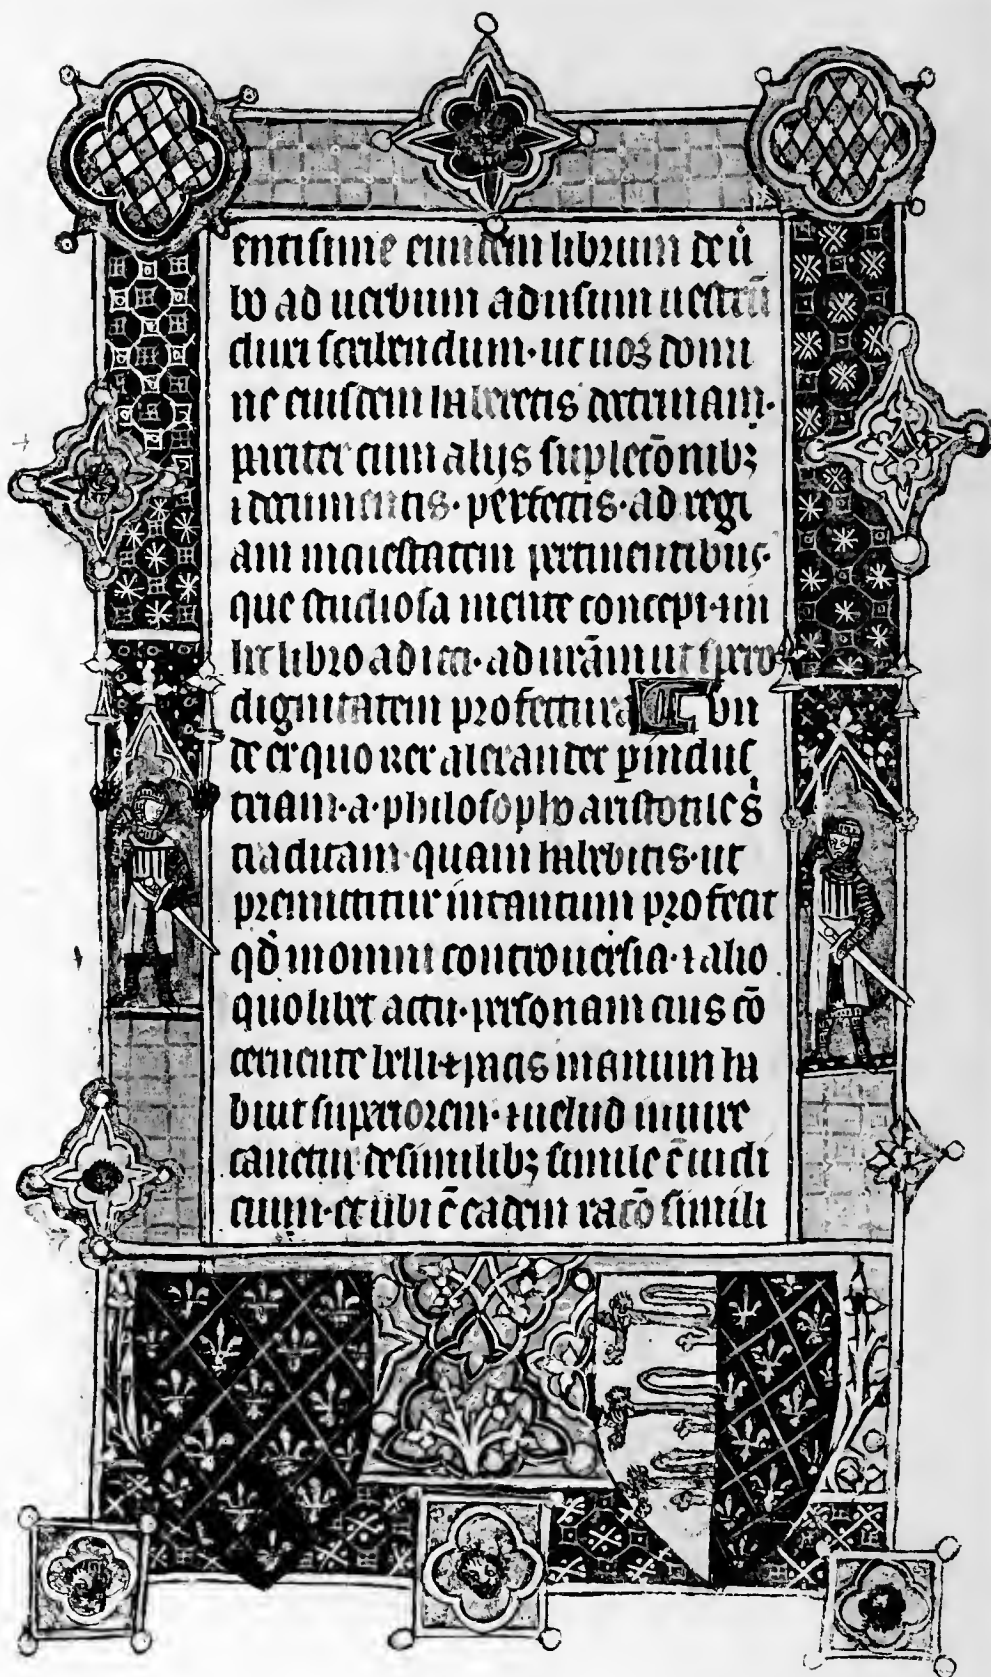 entissime eiusdem librum de ũ
bo ad uerbum ad usum uestrũ
duxi scribendum · ut uos domi
ne eiusdem haberetis doctrinam ·
pariter cum alijs supletõnibꝫ
⁊ documentis · perfectis · ad regi
am maiestatem pertinentibus ·
que studiosa mente concepi · ⁊ in
hec libro adieci · ad urãm ut spero
dignitatem profectura Un
de ex quo rex alexander ꝑ indus
triam · a · philosopho aristotiles
traditam · quam habebitis · ut
premittitur in tantum profecit
qđ in omni controuersia · ⁊ alio
quolibet actu · personam eius cõ
cernente belli ⁊ pacis manum ha
buit superiorem · ⁊ uelud iuniore
cauetur de similibꝫ simile ẽ iudi
cium · et ubi ẽ eadem racõ simili